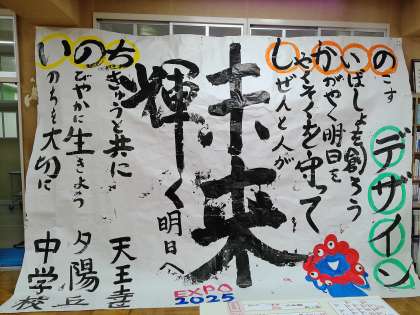 のこす
いばしょを創ろう
かがやく明日を
やくそくを守って
しぜんと人が
デザイン
未来
輝く明日へ
ちきゅうと共に
のびやかに生きよう
いのちを大切に
天王寺
夕陽丘
中学校
EXPO
2025